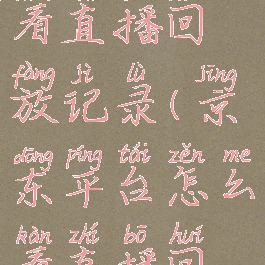 看直播回
fàng jì lù jīng
放记录(京
dōng píng tái zěn me
东平台怎么
kàn zhí bō huí
看直播回